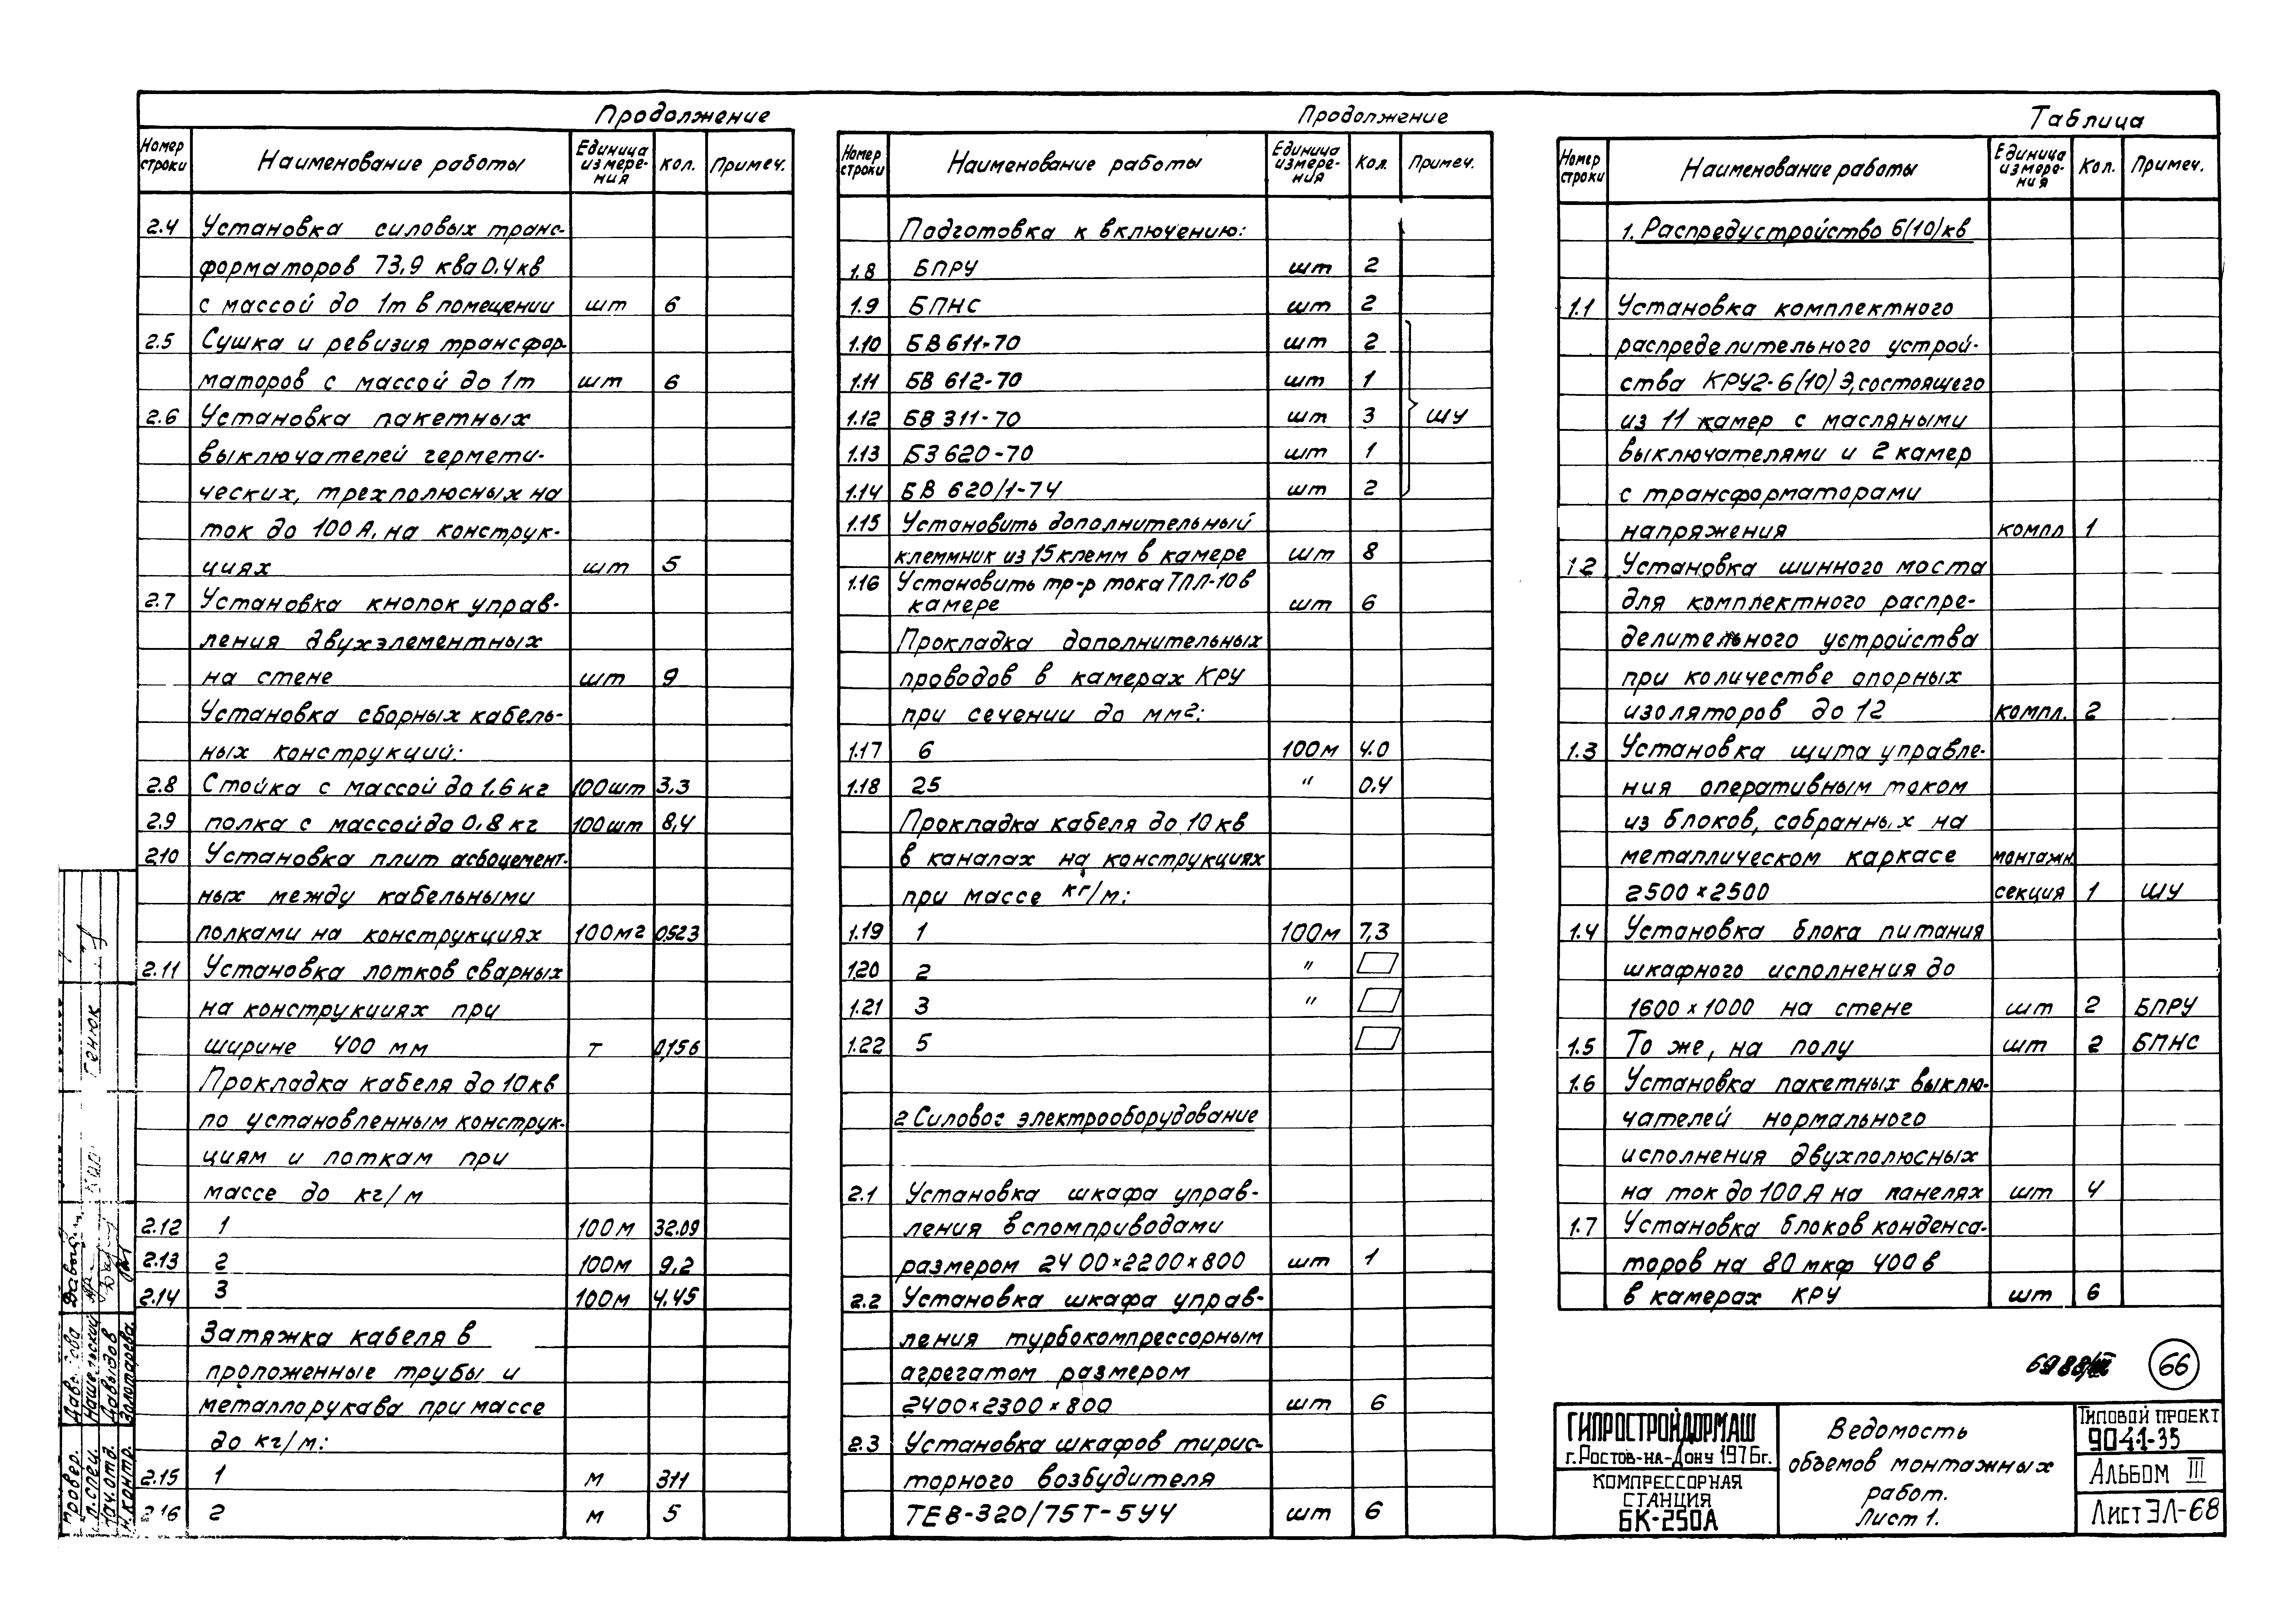 Продолжение
Номер строки Наименование работы Единица измере-ния Кол. Примеч.
2.4 Установка силовых транс-
форматоров 73,9 ква 0,4кв
с массой до 1т в помещении шт 6
2.5 Сушка и ревизия трансфор-
маторов с массой до 1т шт 6
2.6 Установка пакетных
выключателей гермети-
ческих, трехполюсных на
ток до 100А, на конструк-
циях шт 5
2.7 Установка кнопок управ-
ления двухэлементных
на стене шт 9
Установка сборных кабель-
ных конструкций:
2.8 Стойка с массой до 1,6 кг 100шт 3,3
2.9 полка с массой до 0,8 кг 100шт 8,4
2.10 Установка плит асбоцемент-
ных между кабельными
полками на конструкциях 100м2 0,523
2.11 Установка лотков сварных
на конструкциях при
ширине 400 мм т 0,156
Прокладка кабеля до 10кв
по установленным конструк-
циям и лоткам при
массе до кг/м
2.12 1 100м 32.09
2.13 2 100м 9,2
2.14 3 100м 4.45
Затяжка кабеля в
проложенные трубы и
металлорукава при массе
до кг/м:
2.15 1 м 311
2.16 2 м 5
Продолжение
Номер строки Наименование работы Единица измере-ния Кол. Примеч.
Подготовка к включению:
1.8 БПРУ шт 2
1.9 БПНС шт 2
1.10 БВ 611-70 шт 2
1.11 БВ 612-70 шт 1
1.12 БВ 311-70 шт 3 ШУ
1.13 БЗ 620-70 шт 1
1.14 БВ 620/1-74 шт 2
1.15 Установить дополнительный
клеммник из 15 клемм в камере шт 8
1.16 Установить тр-р тока ТПЛ-10 в
камере шт 6
Прокладка дополнительных
проводов в камерах КРУ
при сечении до мм2:
1.17 6 100м 4.0
1.18 25 " 0,4
Прокладка кабеля до 10 кв
в каналах на конструкциях
при массе кг/м:
1.19 1 100м 7,3
1.20 2 "
1.21 3 "
1.22 5
2 Силовое электрооборудование
2.1 Установка шкафа управ-
ления вспомприводами
размером 2400×2200×800 шт 1
2.2 Установка шкафа управ-
ления турбокомпрессорным
агрегатом размером
2400×2300×800 шт 6
2.3 Установка шкафов тирис-
торного возбудителя
ТЕ8-320/75Т-5У4 шт 6
Таблица
Номер строки Наименование работы Единица измере-ния Кол. Примеч.
1. Распредустройство 6(10) кв
1.1 Установка комплектного
распределительного устрой-
ства КРУ2-6(10)Э, состоящего
из 11 камер с масляными
выключателями и 2 камер
с трансформаторами
напряжения компл 1
1.2 Установка шинного моста
для комплектного распре-
делительного устройства
при количестве опорных
изоляторов до 12 компл. 2
1.3 Установка щита управле-
ния оперативным током
из блоков, собранных на
металлическом каркасе монтажн.
2500×2500 секция 1 ШУ
1.4 Установка блока питания
шкафного исполнения до
1600×1000 на стене шт 2 БПРУ
1.5 То же, на полу шт 2 БПНС
1.6 Установка пакетных выклю-
чателей нормального
исполнения двухполюсных
на ток до 100А на панелях шт 4
1.7 Установка блоков конденса-
торов на 80 мкф 400 в
в камерах КРУ шт 6
6988/III 66
ГИПРОСТРОЙДОРМАШ
г. Ростов-на-Дону 1976г.
КОМПРЕССОРНАЯ
СТАНЦИЯ
БК-250А
Ведомость
объемов монтажных
работ.
Лист 1.
Типовой проект
904-1-35
Альбом III
Лист ЭЛ-68
Генюк
Провер.
Гл.спец. Нашельский
Нач.отд. Давыдов
Н.контр. Золотарева